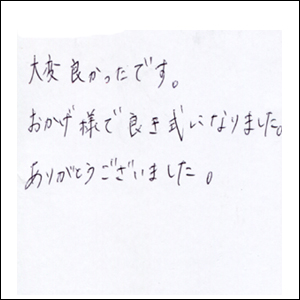 大変良かったです。
おかげ様で良き式になりました。
ありがとうございました。